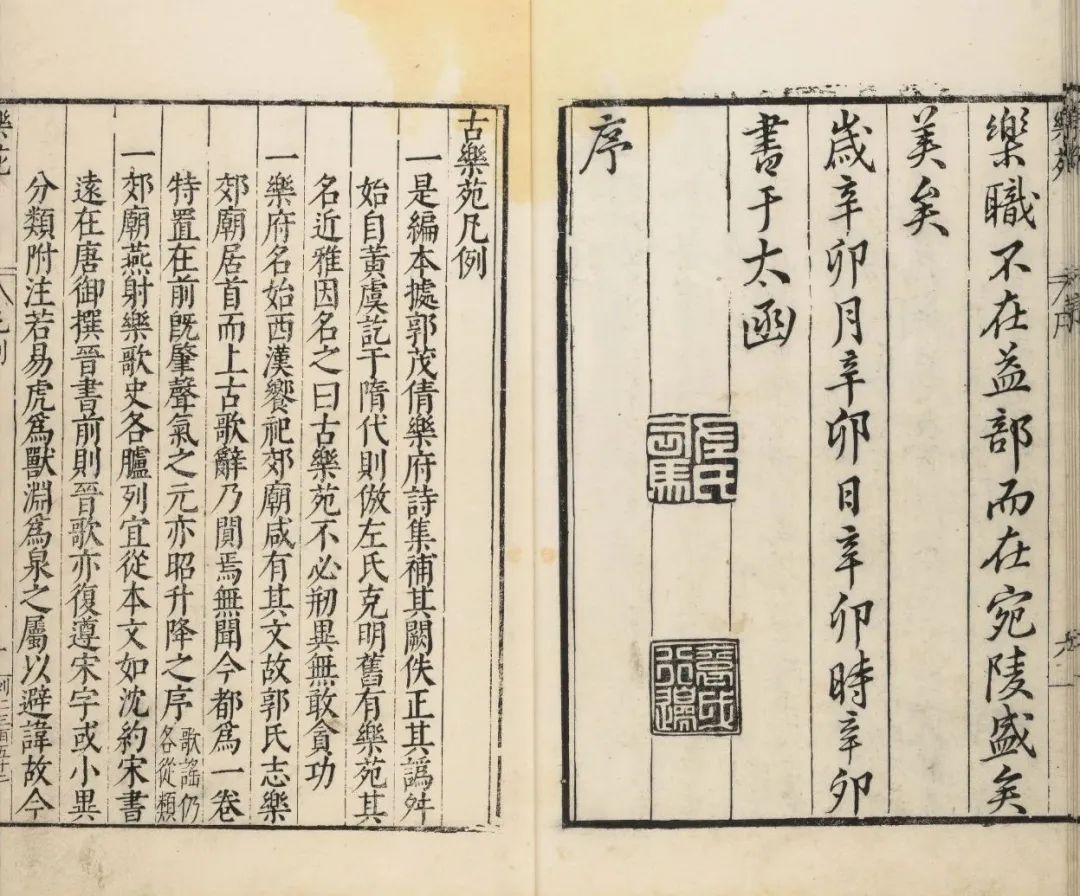 樂職不在益部而在宛陵盛矣
美矣
歲辛卯月辛卯日辛卯時辛卯
書于太函
序
古樂苑凡例
一是編本據郭茂倩樂府詩集補其闕佚正其譌舛
始自黃虞訖于隋代則倣左氏克明舊有樂苑其
名近雅因名之曰古樂苑不必剏異無敢貪功
一樂府名始西漢饗祀郊廟咸有其文故郭氏志樂
郊廟居首而上古歌辭乃闃焉無聞今都爲一卷
特置在前旣肇聲氣之元亦昭升降之序歌謠仍各從類
一郊廟燕射樂歌史各臚列宜從本文如沈約宋書
遠在唐御撰晉書前則晉歌亦復遵宋字或小異
分類附注若易虎爲獸淵爲泉之屬以避諱故今